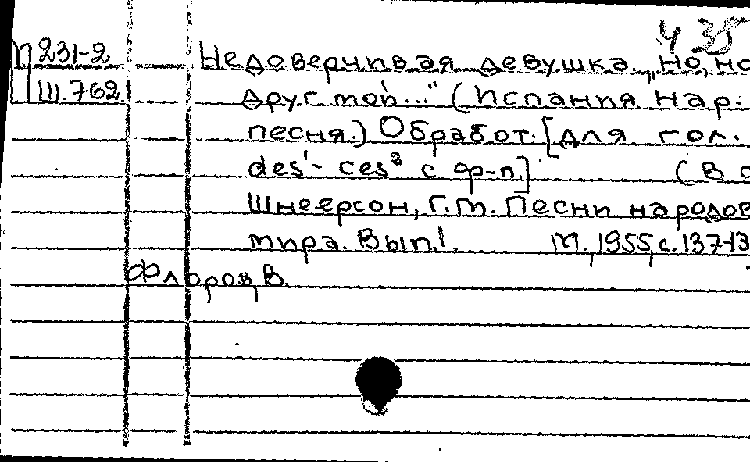 Ч 35
П 231-2 Недоверчивая девушка „Но, но
III.762 друг мой..." (Испания Нар.
песня.) Обработ. [для гол.
des¹- ces² с ф-п.] (В с
Шнеерсон, Г.М. Песни народов
мира. Вып.1. М., 1955, с.137-13
Флоров, В.